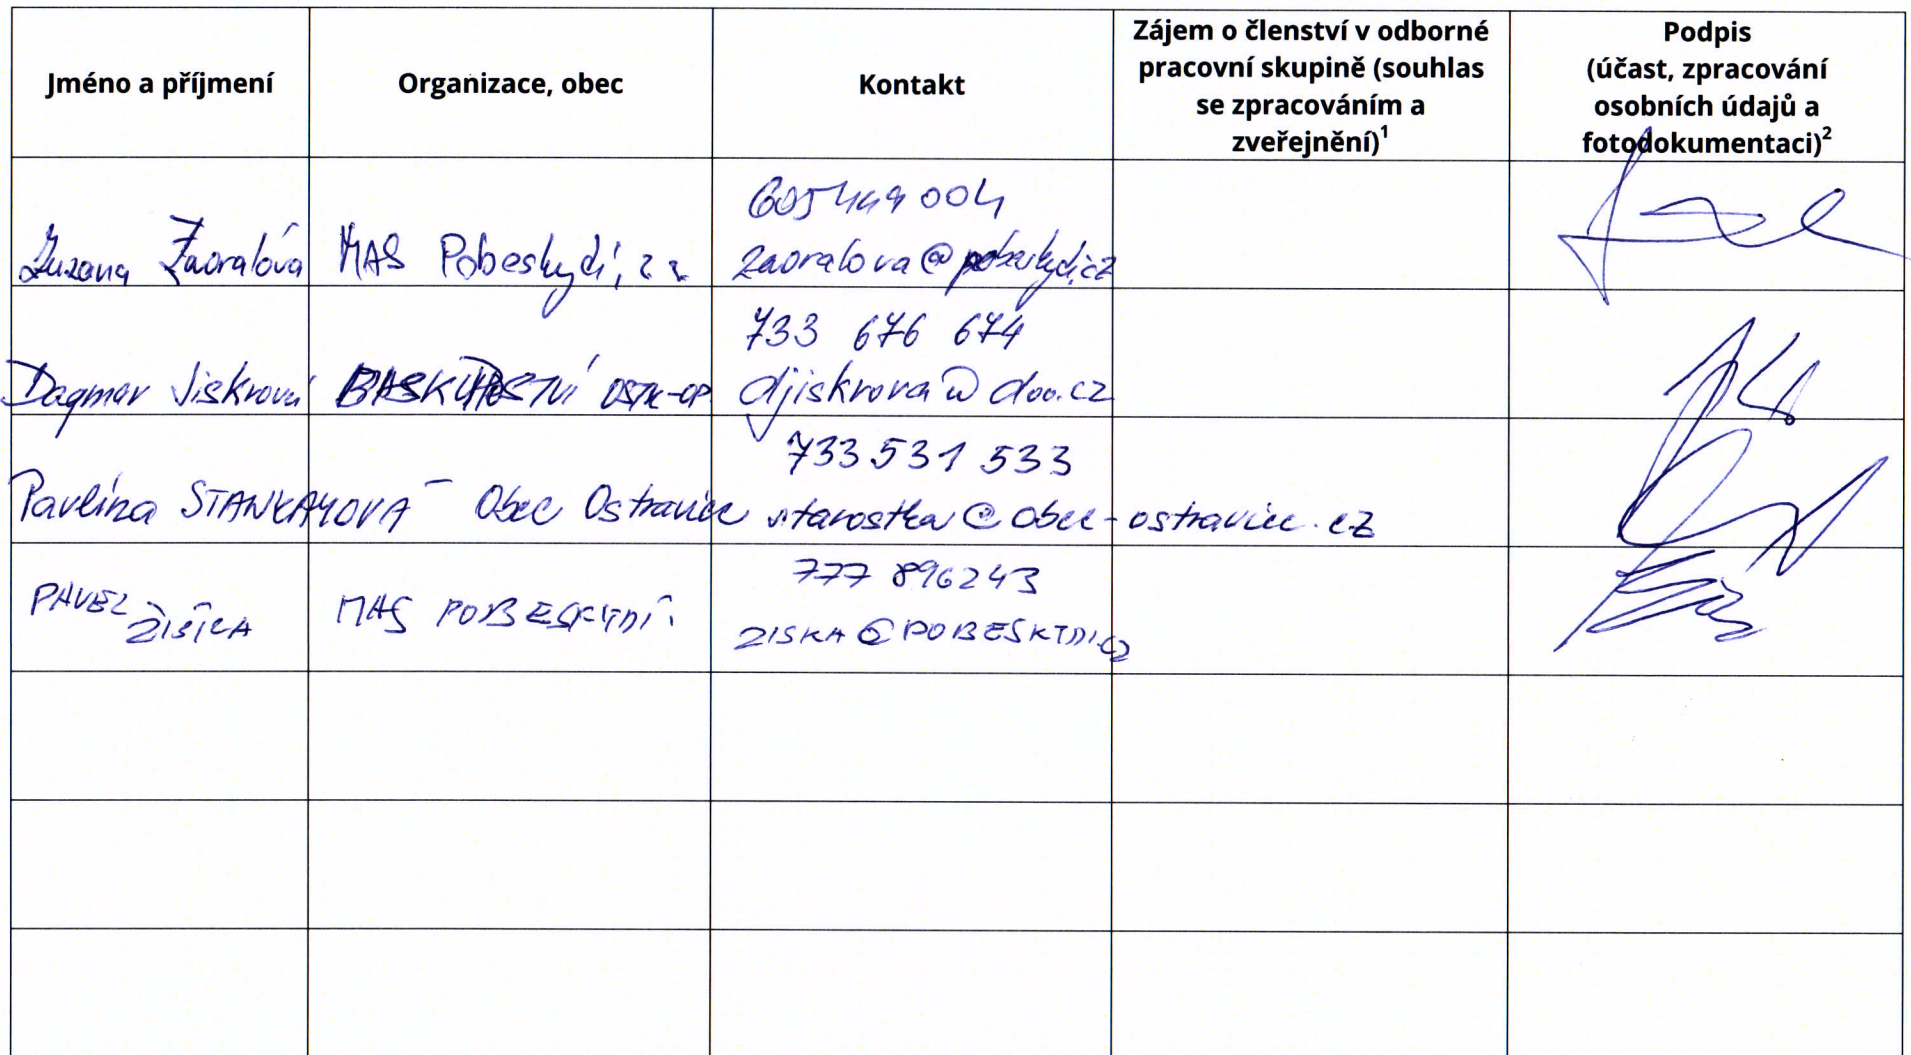 Jméno a příjmení
Organizace, obec
Kontakt
Zájem o členství v odborné
pracovní skupině (souhlas
se zpracováním a
zveřejnění)1
Podpis
(účast, zpracování
osobních údajů a
fotodokumentaci)2
Zuzana Zaoralová
MAS Pobeskydí, z s
605 449 004
zaoralova@pobeskydi.cz
Dagmar Jiskrová
BISKUPSTVÍ OSTR-OP
733 676 674
djiskrova@doo.cz
Pavlína STANKAYOVÁ
Obec Ostravice
733 531 533
starostka@obec-ostravice.cz
PAVEL
ŽIŠKA
MAS POBESKYDÍ
777 896243
ZISKA@POBESKYDI.CZ